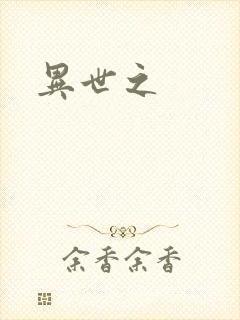 異世之
余香余香